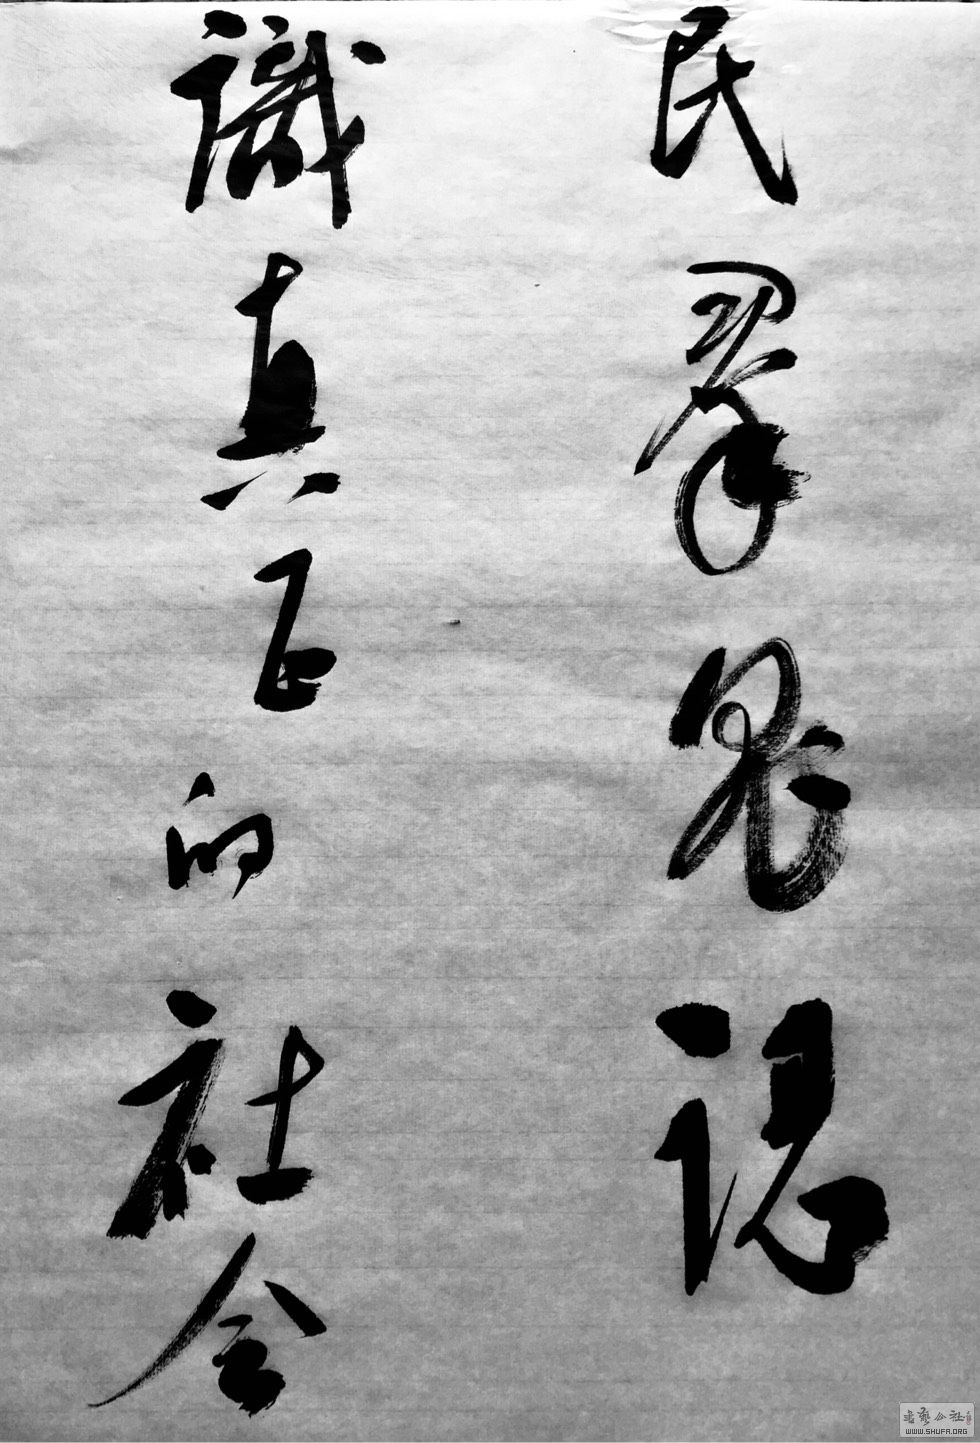 民羣眾認
識真正的社会
書藝公社
WWW.SHUFA.ORG